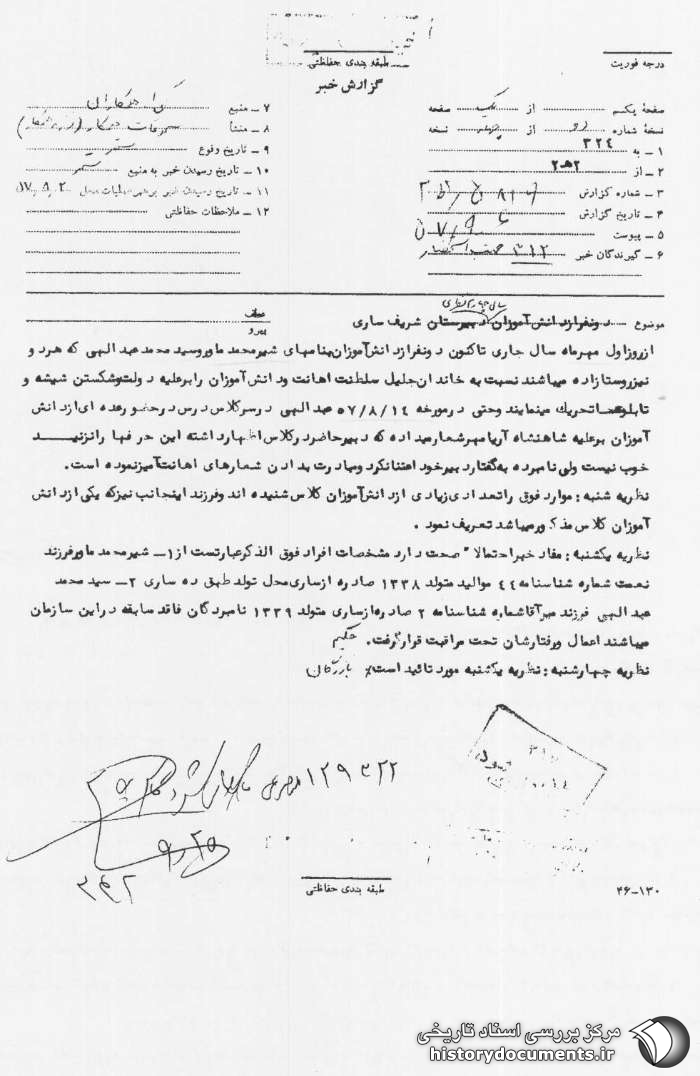 طبقه بندی حفاظتی
درجه فوریت
گزارش خبر
صفحه یکم از یک صفحه
نسخه شماره دو از نسخه
۱ ـ به ۳۲۴
۲ ـ از ۲هـ۲
۳ ـ شماره گزارش
۴ ـ تاریخ گزارش
۵ ـ پیوست
۶ ـ گیرندگان خبر ۳۱۲
۷ ـ منبع همکاران
۸ ـ منشأ
۹ ـ تاریخ وقوع
۱۰ ـ تاریخ رسیدن خبر به منبع
۱۱ ـ تاریخ رسیدن خبر برهبر عملیات محل
۱۲ ـ ملاحظات حفاظتی
موضوع دونفرازدانش‌آموزان دبیرستان شریف ساری
عطف
پیرو
ازروزاول مهرماه سال جاری تاکنون دونفرازدانش‌آموزان‌بنامهای شیرمحمدماوروسیدمحمدعبدالهی که هردو
نیزروستازاده میباشند نسبت به خاندان‌جلیل سلطنت اهانت ودانش‌آموزان رابرعلیه دولت‌وشکستن شیشه و
تابلوها تحریك مینمایند وحتی درمورخه ۵۷/۸/۱۴ عبدالهی درسرکلاس درس درحضورعده ای‌ازدانش
آموزان برعلیه شاهنشاه آریامهرشعارمیداده که دبیرحاضردرکلاس اظهارداشته این حرفها رانزنیـد
خوب نیست ولی نامبرده به‌گفتاردبیرخود اعتنانکردومبادرت به دادن شعارهای اهانت‌آمیزنموده است.
نظریه شنبه : مواردفوق راتعدادی‌زیادی ازدانش‌آموزان کلاس شنیده اندوفرزند اینجانب نیزکه یکی ازدانش
آموزان کلاس مذکورمیباشد تعریف نمود .
نظریه یکشنبه : مفاد خبراحتمالا" صحت دارد مشخصات افراد فوق الذکرعبارتست از۱ـ شیرمحمدماورفرزند
نعمت شماره شناسنامه ۴۴ موالید متولد ۱۳۳۸ صادره ازساری‌محل تولد طبق ده ساری ۲ـ سید محمد
عبدالهی فرزند میرآقاشماره شناسنامه ۲ صادره‌ازساری متولد ۱۳۳۹ نامبردگان فاقد سابقه دراین سازمان
میباشند اعمال ورفتارشان تحت مراقبت قرارگرفت. حکیم
نظریه چهارشنبه : نظریه یکشنبه مورد تائید است.
طبقه بندی حفاظتی
۴۶-۱۳۰
مرکز بررسی اسناد تاریخی
historydocuments.ir